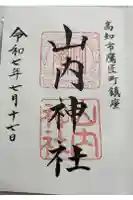 高知市鷹匠町鎮座
山内神社
令和七年七月十七日